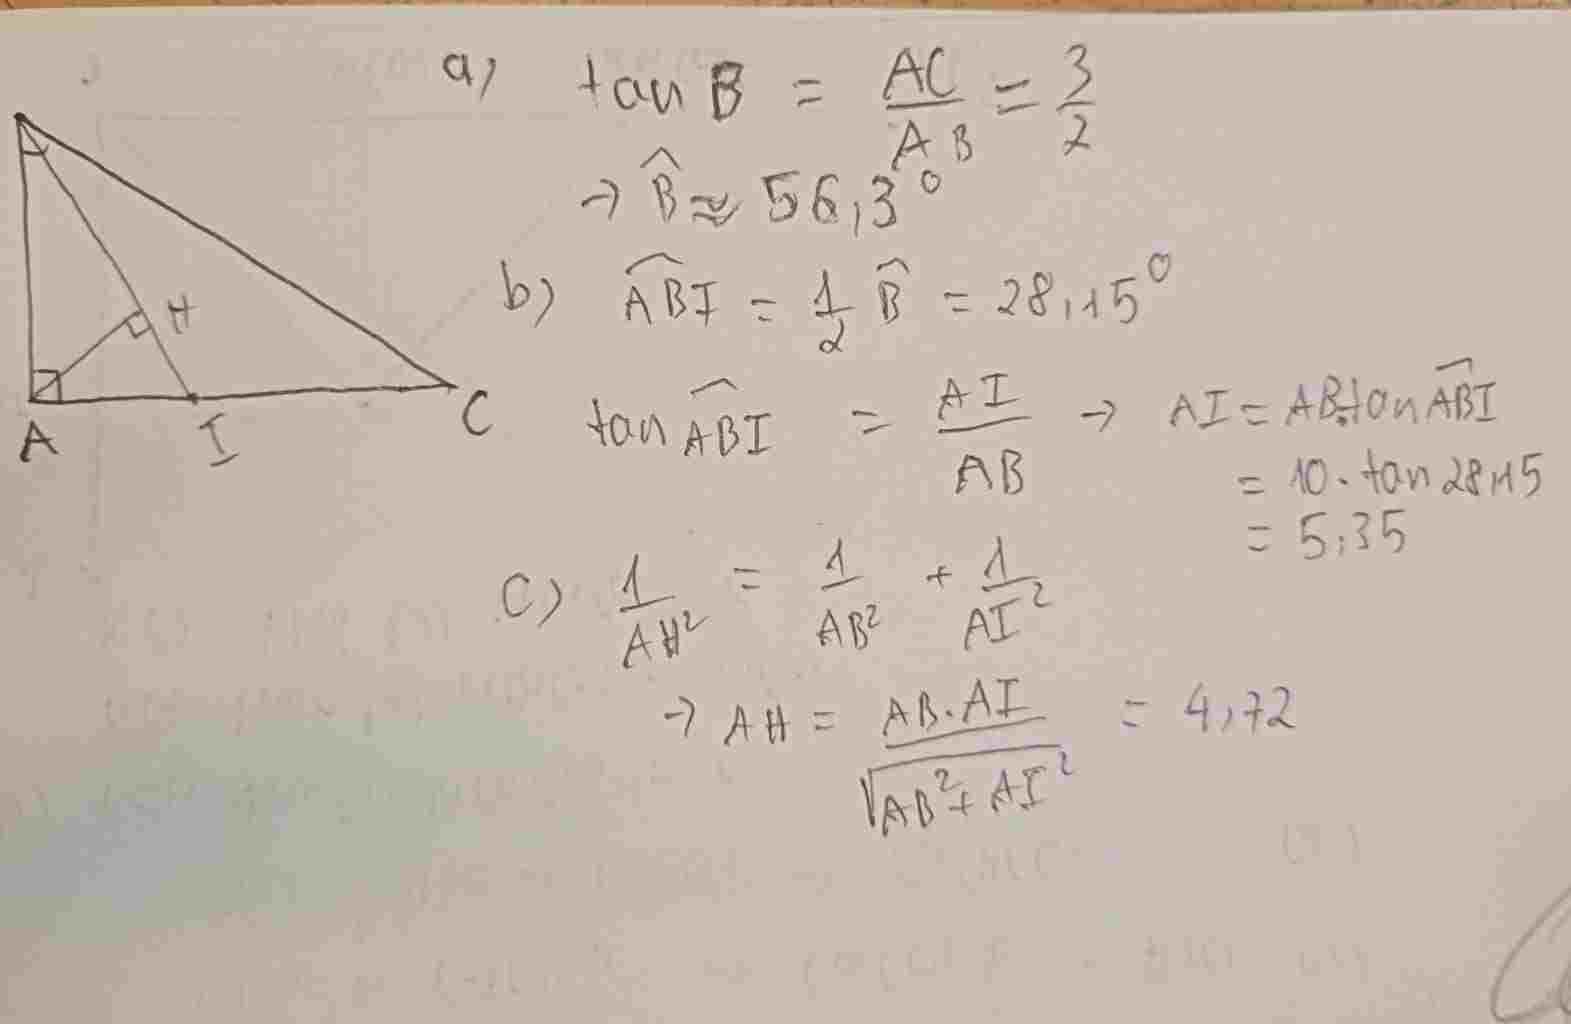 a) tan B = AC/AB = 3/2
→ B̂ ≈ 56,3°
b) ABI^ = 1/2 B̂ = 28,15°
tan ABI^ = AI/AB → AI = AB.tan ABI^
= 10. tan 28,15
= 5,35
c) 1/AH² = 1/AB² + 1/AI²
→ AH = AB.AI/√(AB²+AI²) = 4,72
H
A
I
C